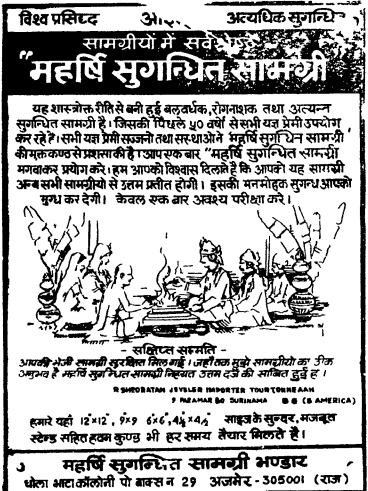 विश्व प्रसिध्द अत्यधिक सुगन्धि
सामग्रीयों में
"महर्षि सुगन्धित सामग्री
यह शास्त्रोक्त रीति से बनी हुई बलवर्धक, रोगनाशक तथा अत्यन्त
सुगन्धित सामग्री है। जिसकी पिछले ५० वर्षो से सभी यज्ञ प्रेमी उपयोग
कर रहे हैं। सभी यज्ञ प्रेमी सज्जनो तथा संस्थाओ ने महर्षि सुगन्धित सामग्री
की मुक्त कण्ठ से प्रशंसा की है। आप एक बार "महर्षि सुगन्धित सामग्री
मगवाकर प्रयोग करे। हम आपको विश्वास दिलाते है कि आपको यह सामग्री
अन्य सभी सामग्रीयो से उत्तम प्रतीत होगी। इसकी मनमोहक सुगन्ध आपको
मुग्ध कर देगी। केवल एक बार अवश्य परीक्षा करे।
संक्षिप्त सम्मति -
आपकी भेजी सामग्री सुरक्षित मिल गई। जहाँ तक मुझे सामग्रीयो का ठीक
अनुभव है महर्षि सुगन्धित सामग्री निहायत उत्तम दर्जे की साबित हुई है।
R SHEORATAN JEWELER IMPORTER
SURINAMA (S AMERICA)
हमारे यहाँ 12"x12", 9"x9" 6"x6", 4½"x4½" साइज के सुन्दर, मजबूत
स्टेन्ड सहित हवन कुण्ड भी हर समय तैयार मिलते है।
महर्षि सुगन्धित सामग्री भण्डार
धोला भाटा कॉलोनी पो बाक्स न 29 अजमेर - 305001 (राज)